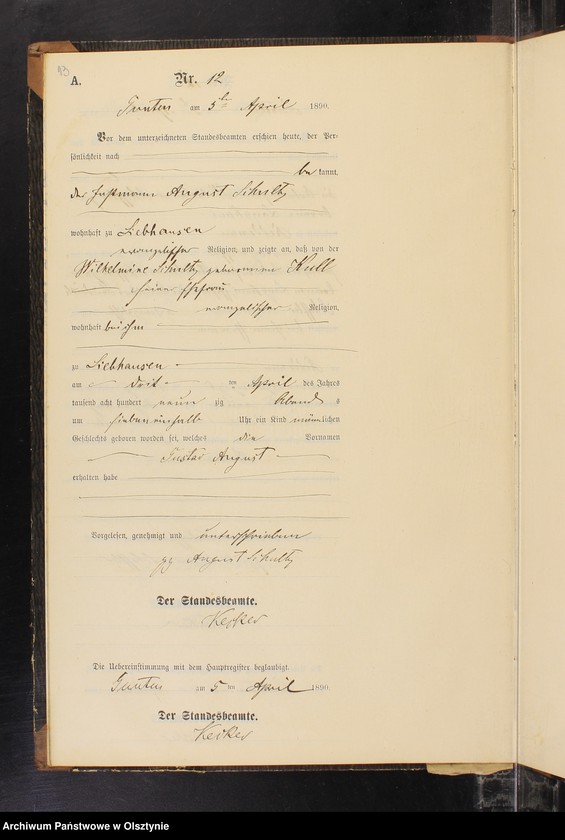 93
A.
Nr. 12
am 5ten April 1890.
Vor dem unterzeichneten Standesbeamten erschien heute, der Per-
sönlichkeit nach
be kannt,
der August Schultz
wohnhaft zu Liebhausen
evangelischer Religion, und zeigte an, daß von der
Wilhelmine Schultz geborenen Kull
seiner Ehefrau
evangelischer Religion,
wohnhaft bei ihm
zu Liebhausen
am drit ten April des Jahres
tausend acht hundert neun zig Abend s
um siebeneinhalb Uhr ein Kind männlichen
Geschlechts geboren worden sei, welches die Vornamen
Gustav August
erhalten habe
Vorgelesen, genehmigt und unterschrieben
gz August Schultz
Der Standesbeamte.
Die Uebereinstimmung mit dem Hauptregister beglaubigt.
am 5 ten April 1890
Der Standesbeamte.
Archiwum Państwowe w Olsztynie